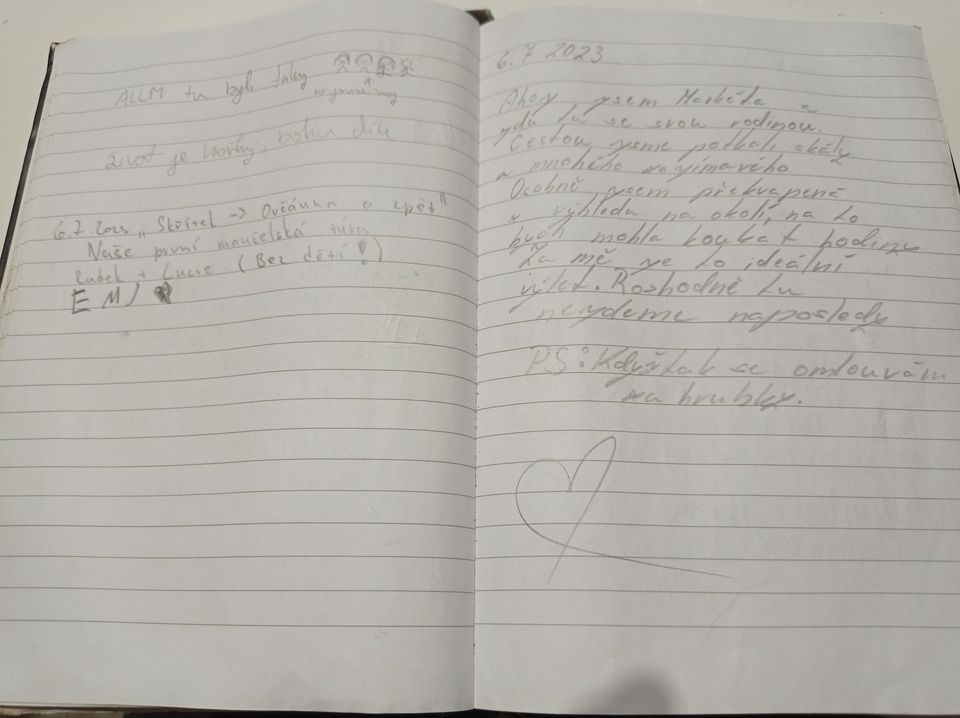 ALLM tu byli taky
to jsme my
život je horký, bohu díle
6.7. 2023 „ Skřítel -> Ovčárna a zpět "
Naše první manželská túra
Radek + Lucie (Bez dětí!)
EMJ
6.7 2023
Ahoj jsem Markéta a
jdu tu se svou rodinou.
Cestou jsme potkali skály
a mnohého zajímavého
Osobně jsem překvapená
z výhledu na okolí, na to
bych mohla koukat hodiny
Za mě je to ideální
výlet. Rozhodně tu
nejdeme naposledy
PS: Kdyžtak se omlouvám
za hrubky.